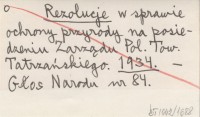 o Rezolucje w sprawie
ochrony przyrody na posie-
dzeniu Zarządu Pol. Tow.
Tatrzańskiego. 1934. -
Głos Narodu nr 84.